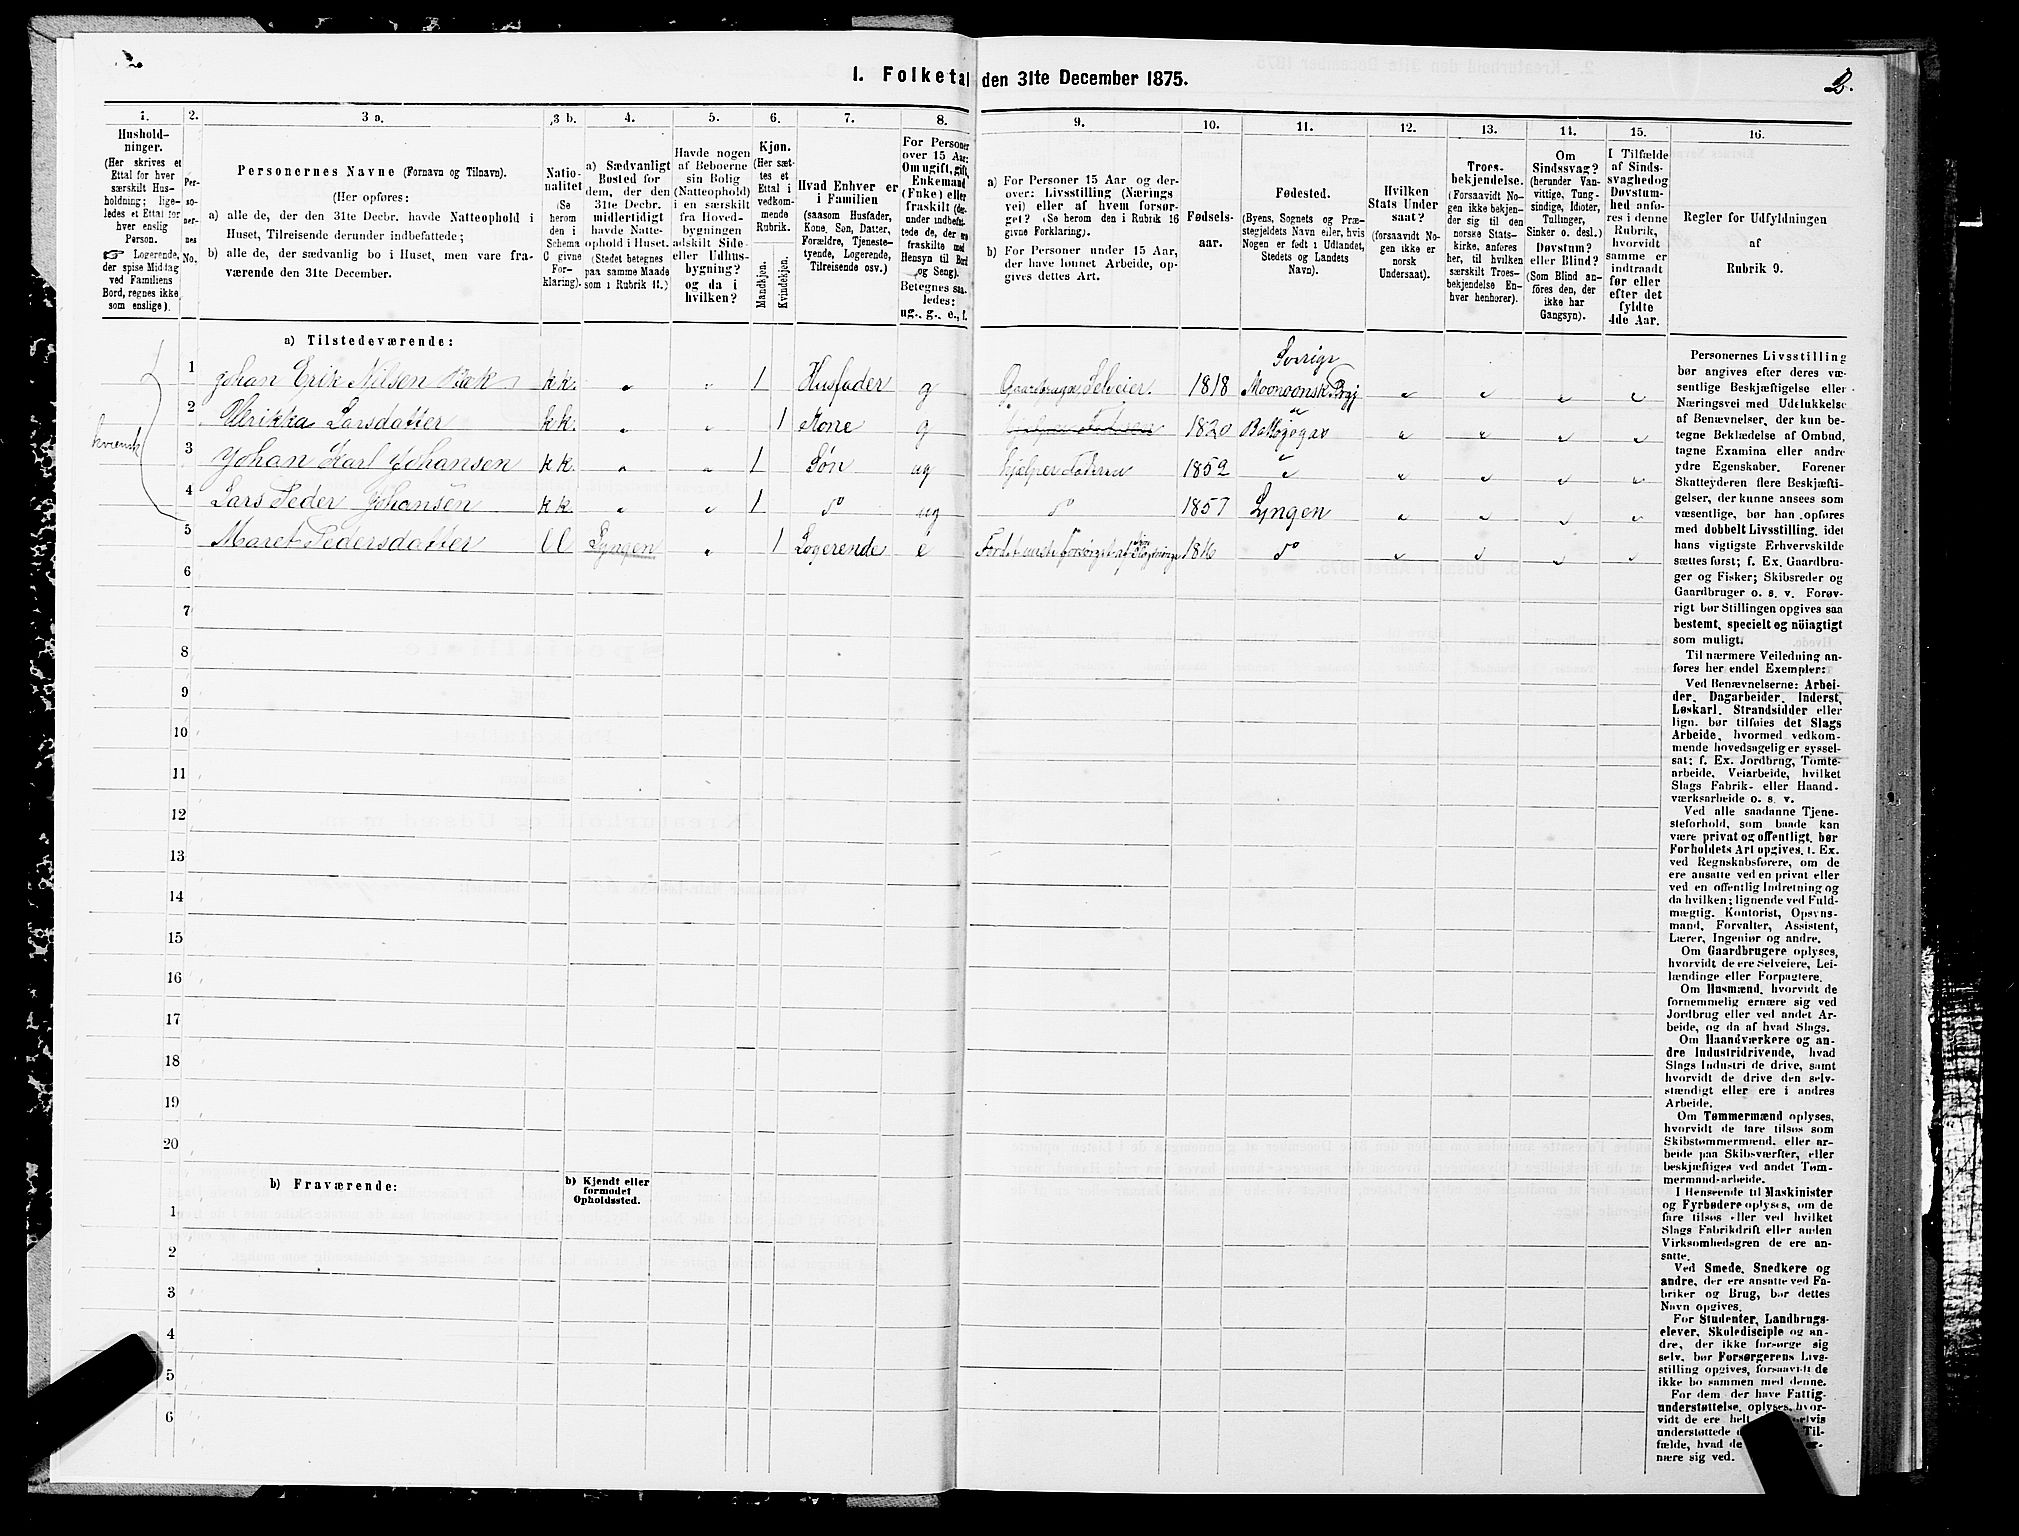 1. Folketal den 31te December 1875.
2.
1.
Hushold-
ninger.
(Her skrives et
Ettal for hver
særskilt Hus-
holdning; lige-
ledes et Ettal for
hver enslig
Person.
☞ Logerende,
der spise Middag
ved Familiens
Bord, regnes ikke
som enslige).
2.
Per-
so-
ner-
nes
No.
3 a.
Personernes Navne (Fornavn og Tilnavn).
(Her opføres:
a) alle de, der den 31te Decbr. havde Natteophold i
Huset, Tilreisende derunder indbefattede;
b) alle de, der sædvanlig bo i Huset, men vare fra-
værende den 31te December.
3 b.
Natio-
nalitet
(Se
herom
den i
Schema
C givne
For-
klaring).
4.
a) Sædvanligt
Bosted for
dem, der den
31te Decbr.
midlertidigt
havde Natte-
ophold i Huset.
(Stedet betegnes
paa samme Maade
som i Rubrik 11.)
5.
Havde nogen
af Beboerne
sin Bolig
(Natteophold)
i en særskilt
fra Hoved-
bygningen
adskilt Side-
eller Udhus-
bygning?
og da i
hvilken?
6.
Kjøn.
(Her sæt-
tes et
Ettal i
vedkom-
mende
Rubrik.
Mandkjøn.
Kvindekjøn.
7.
Hvad Enhver er
i Familien
(saasom Husfader,
Kone, Søn, Datter,
Forældre, Tjeneste-
tyende, Logerende,
Tilreisende osv.)
8.
For Personer
over 15 Aar:
Om ugift, gift,
Enkemand
(Enke) eller
fraskilt (der-
under indbefat-
tede de, der ere
fraskilte med
Hensyn til Bord
og Seng).
Betegnes saa-
ledes:
ug., g., e., f.
9.
a) For Personer 15 Aar og der-
over: Livsstilling (Nærings
vei) eller af hvem forsør-
get? (Se herom den i Rubrik 16
givne Forklaring).
b) For Personer under 15 Aar,
der have lønnet Arbeide, op-
gives dettes Art.
10.
Fødsels-
aar.
11.
Fødested.
(Byens, Sognets og Præ-
stegjeldets Navn eller, hvis
Nogen er født i Udlandet,
Stedets og Landets
Navn).
12.
Hvilken
Stats Under
saat?
(forsaavidt No-
gen ikke er
norsk
Undersaat).
13.
Troes-
bekjendelse.
(Forsaavidt No-
gen ikke bekjen-
der sig til den
norske Stats-
kirke, anføres
her, til hvilken
særskilt Troes-
bekjendelse En-
hver henhører).
14.
Om
Sindssvag?
(herunder Van-
vittige, Tung-
sindige, Idioter,
Tullinger,
Sinker o. desl.)
Døvstum?
eller Blind?
(Som Blind an-
føres den, der
ikke har
Gangsyn).
15.
I Tilfælde
af Sinds-
svaghed og
Døvstum-
hed anfø-
res i denne
Rubrik,
hvorvidt
samme er
indtraadt
før eller
efter det
fyldte
4de Aar.
16.
Regler for Udfyldningen
af
Rubrik 9.
a) Tilstedeværende:
1 Johan Erik Nilsen Bæk kk. „ „ 1 Husfader g Gaardbruger Selveier. 1818 Sverige „ „ „ „
2 Ulrikka Larsdatter kk. „ „ 1 Kone g 1820 „ „ „ „
3 Johan Karl Johansen kk. „ „ 1 Søn ug hjelper Faderen 1852 „ „ „ „ „
4 Lars Peder Johansen kk „ „ 1 do ug do 1857 Lyngen „ „ „ „
5 Maret Pedersdatter Lyngen „ 1 Logerende e do „ „ „ „
6
7
8
9
10
11
12
13
14
15
16
17
18
19
20
b) Fraværende:
b) Kjendt eller
formodet
Opholdssted.
1
2
3
4
5
6
Personernes Livsstilling
bør angives efter deres væ-
sentlige Beskjæftigelse eller
Næringsvei med Udelukkelse
af Benævnelser, der kun be-
tegne Beklædelse af Ombud,
tagne Examina eller andre
ydre Egenskaber. Forener
Skatteyderen flere Beskjæfti-
gelser, der kunne ansees som
væsentlige, bør han opføres
med dobbelt Livsstilling, idet
hans vigtigste Erhvervskilde
sættes først; f. Ex. Gaardbru-
ger og Fisker; Skibsreder og
Gaardbruger o. s. v. Forøv-
rigt bør Stillingen opgives saa
bestemt, specielt og nöiagtigt
som muligt.
Til nærmere Veiledning an-
føres her endel Exempler:
Ved Benævnelserne: Arbei-
der, Dagarbeider, Inderst,
Løskarl, Strandsidder eller
lign. bør tilføies det Slags
Arbeide, hvormed vedkom-
mende hovedsagelig er syssel-
sat; f. Ex. Jordbrug, Tomte-
arbeide, Veiarbeide, hvilket
Slags Fabrik- eller Haand-
værksarbeide o. s. v.
Ved alle saadanne Tjene-
steforhold, som baade kan
være privat og offentligt, bør
Forholdets Art opgives, f. Ex.
ved Regnskabsførere, om de
ere ansatte ved en privat eller
ved en offentlig Indretning og
da hvilken; lignende ved Fuld-
mægtig, Kontorist, Opsyns-
mand, Forvalter, Assistent,
Lærer, Ingeniør og andre.
Om Gaardbrugere oplyses,
hvorvidt de ere Selveiere, Lei-
lændinge eller Forpagtere.
Om Husmænd, hvorvidt de
fornemmelig ernære sig ved
Jordbrug eller ved andet Ar-
beide, og da af hvad Slags.
Om Haandværkere og an-
dre Industridrivende, hvad
Slags Industri de drive, samt
hvorvidt de drive den selv-
stændigt eller ere i andres
Arbeide.
Om Tømmermænd oplyses,
hvorvidt de fare tilsøs som
Skibstømmermænd, eller ar-
beide paa Skibsværfter, eller
beskjæftiges ved andet Tøm-
mermand-arbeide.
I Henseende til Maskinister
og Fyrbødere oplyses, om de
fare tilsøs eller ved hvilket
Slags Fabrikdrift eller anden
Virksomhedsgren de ere an-
satte.
Ved Smede, Snedkere og
andre, der ere ansatte ved Fa-
briker og Brug, bør dettes
Navn opgives.
For Studenter, Landbrugs-
elever, Skoledisciple og an-
dre, der ikke forsørge sig
selv, bør Forsørgerens Livs-
stilling opgives, forsaavidt de
ikke bo sammen med denne.
For dem, der have Fattig-
understøttelse, oplyses, hvor-
vidt de ere helt
understøttede
nære sig ved.